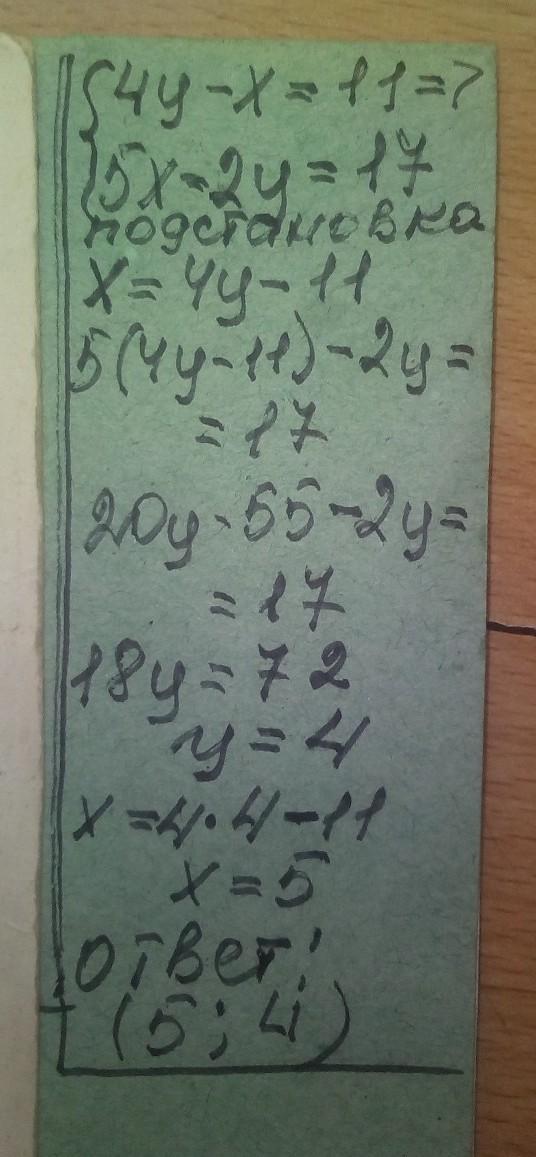 {4y - x = 11 =>
{5x - 2y = 17
подстановка
x = 4y - 11
5(4y - 11) - 2y =
= 17
20y - 55 - 2y =
= 17
18y = 72
y = 4
x = 4 · 4 - 11
x = 5
ответ:
(5; 4)